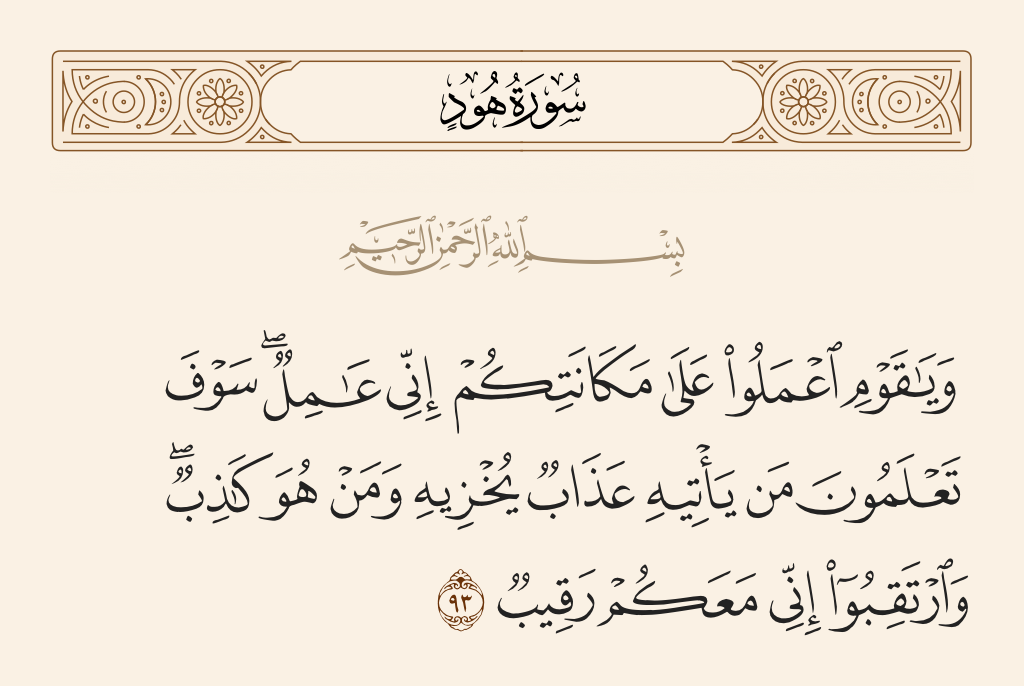 سُورَةُ هُودٍ
بِسْمِ ٱللَّهِ ٱلرَّحْمَٰنِ ٱلرَّحِيمِ
وَيَٰقَوْمِ ٱعْمَلُوا۟ عَلَىٰ مَكَانَتِكُمْ إِنِّى عَٰمِلٌ ۖ سَوْفَ
تَعْلَمُونَ مَن يَأْتِيهِ عَذَابٌ يُخْزِيهِ وَمَنْ هُوَ كَٰذِبٌ ۖ
وَٱرْتَقِبُوٓا۟ إِنِّى مَعَكُمْ رَقِيبٌ ٩٣